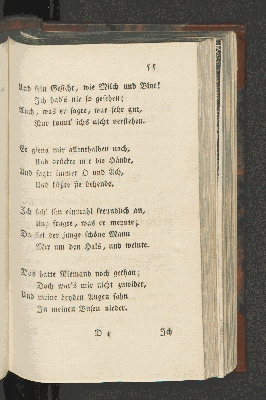 55
Und sein Gesicht, wie Milch und Blut!
Ich hab's nie so gesehen;
Auch, was er sagte, war sehr gut,
Nur konnt' ichs nicht verstehen.
Er gieng mir allenthalben nach,
Und drückte mir die Hände,
Und sagte immer O und Ach,
Und küßte sie behende.
Ich sah' ihn einmahl freundlich an,
Und fragte, was er meynte;
Da fiel der junge schöne Mann
Mir um den Hals, und weinte.
Das hatte Niemand noch gethan;
Doch war's mir nicht zuwider,
Und meine beyden Augen sahn
In meinen Busen nieder.
D 4 Ich